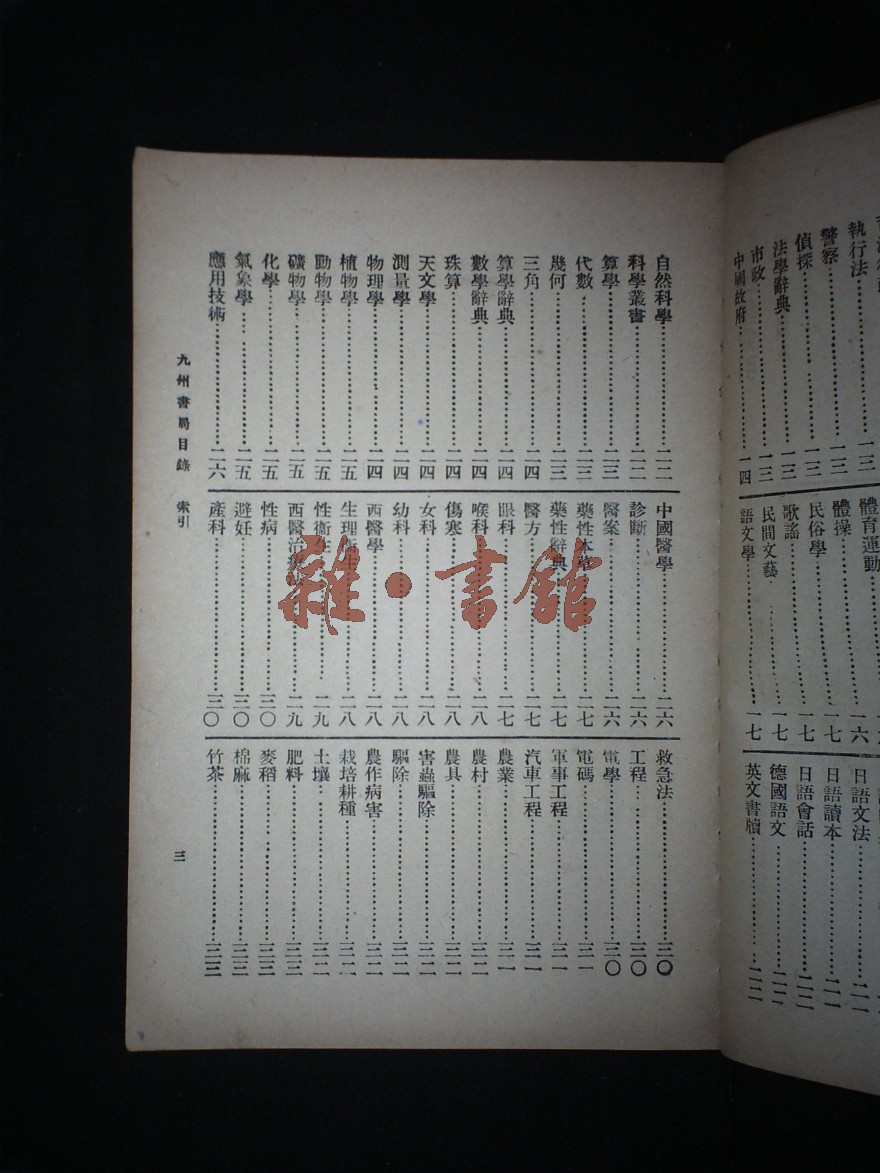 執行法……一三
警察……一三
偵探……一三
法學辭典……一三
市政……一三
中國政府……一四
體育運動
體操……一六
民俗學……一七
歌謠……一七
民間文藝……一七
語文學……一七
日語文法
日語讀本……二一
日語會話……二一
德國語文……二二
英文書牘……二二
自然科學……二二
科學叢書……二二
算學……二三
代數……二三
幾何……二三
三角……二四
算學辭典……二四
數學辭典……二四
珠算……二四
天文學……二四
測量學……二四
物理學……二四
植物學……二五
動物學……二五
礦物學……二五
化學……二五
氣象學……二五
應用技術……二六
中國醫學……二六
診斷……二六
醫案……二六
藥性本草……二七
藥性辭典……二七
醫方……二七
眼科……二七
喉科……二八
傷寒……二八
女科……二八
幼科……二八
西醫學……二八
生理衛生……二八
性衛生……二九
西醫治療……二九
性病……三〇
避妊……三〇
產科……三〇
救急法……三〇
工程……三〇
電學……三〇
電碼……三一
軍事工程……三一
汽車工程……三一
農業……三一
農村……三二
農具……三二
害蟲驅除……三二
驅除……三二
農作病害……三二
栽培耕種……三二
土壤……三二
肥料……三三
麥稻……三三
棉麻……三三
竹茶……三三
九州書局目錄 索引
三
雜·書館